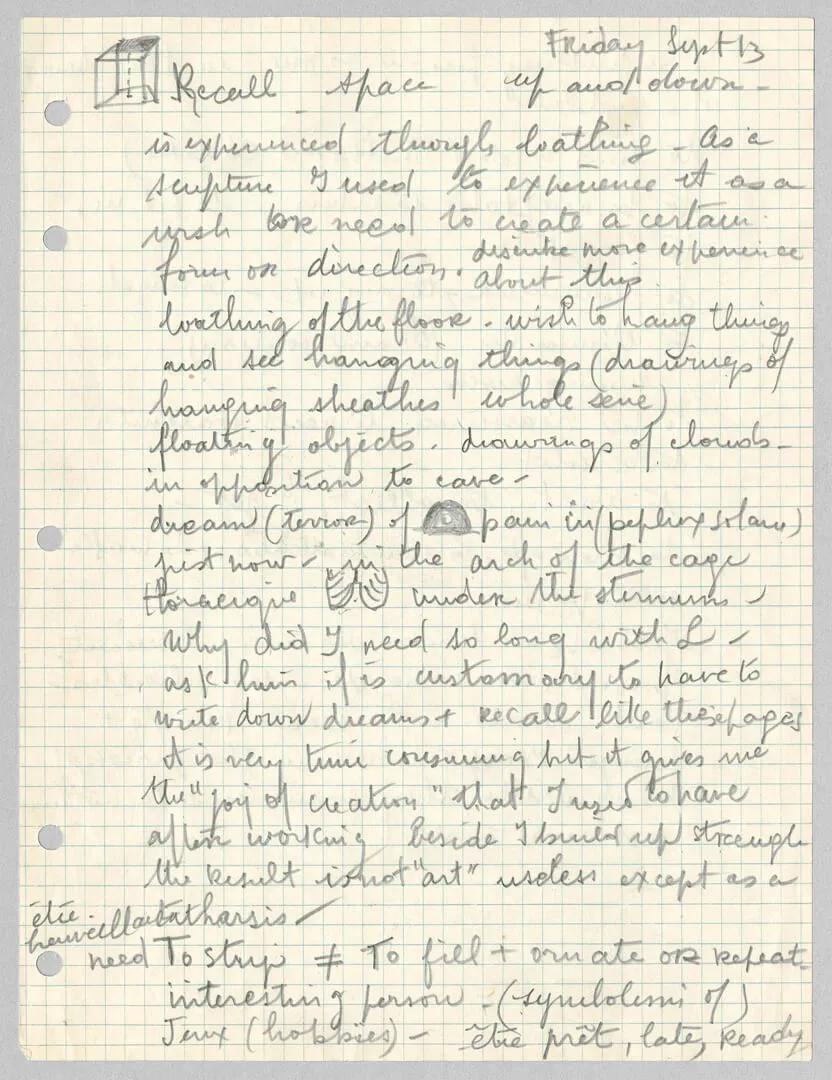 Friday Sept 13
Recall space up and down -
is experienced through loathing - As a
sculpture I used to experience it as a
wish or need to create a certain
form or direction.
about this
loathing of the floor. wish to hang things
and see hanging things (drawings of
hanging sheathes whole serie)
floating objects. drawings of clouds -
in opposition to cave -
dream (terror) of pain in (peplux solaire)
just now - in the arch of the cage
toracique under the sternum -
Why did I need so long with L -
ask him if is customary to have to
write down dreams + recall like these pages
it is very time consuming but it gives me
the "joy of creation" that I used to have
after working beside I build up strength
the result is not "art" useless except as a
catharsis -
être.
need To strip ≠ To fill + ornate or repeat
interesting person - (symbolism of)
Jeux (hobbies) - être prêt, late, ready